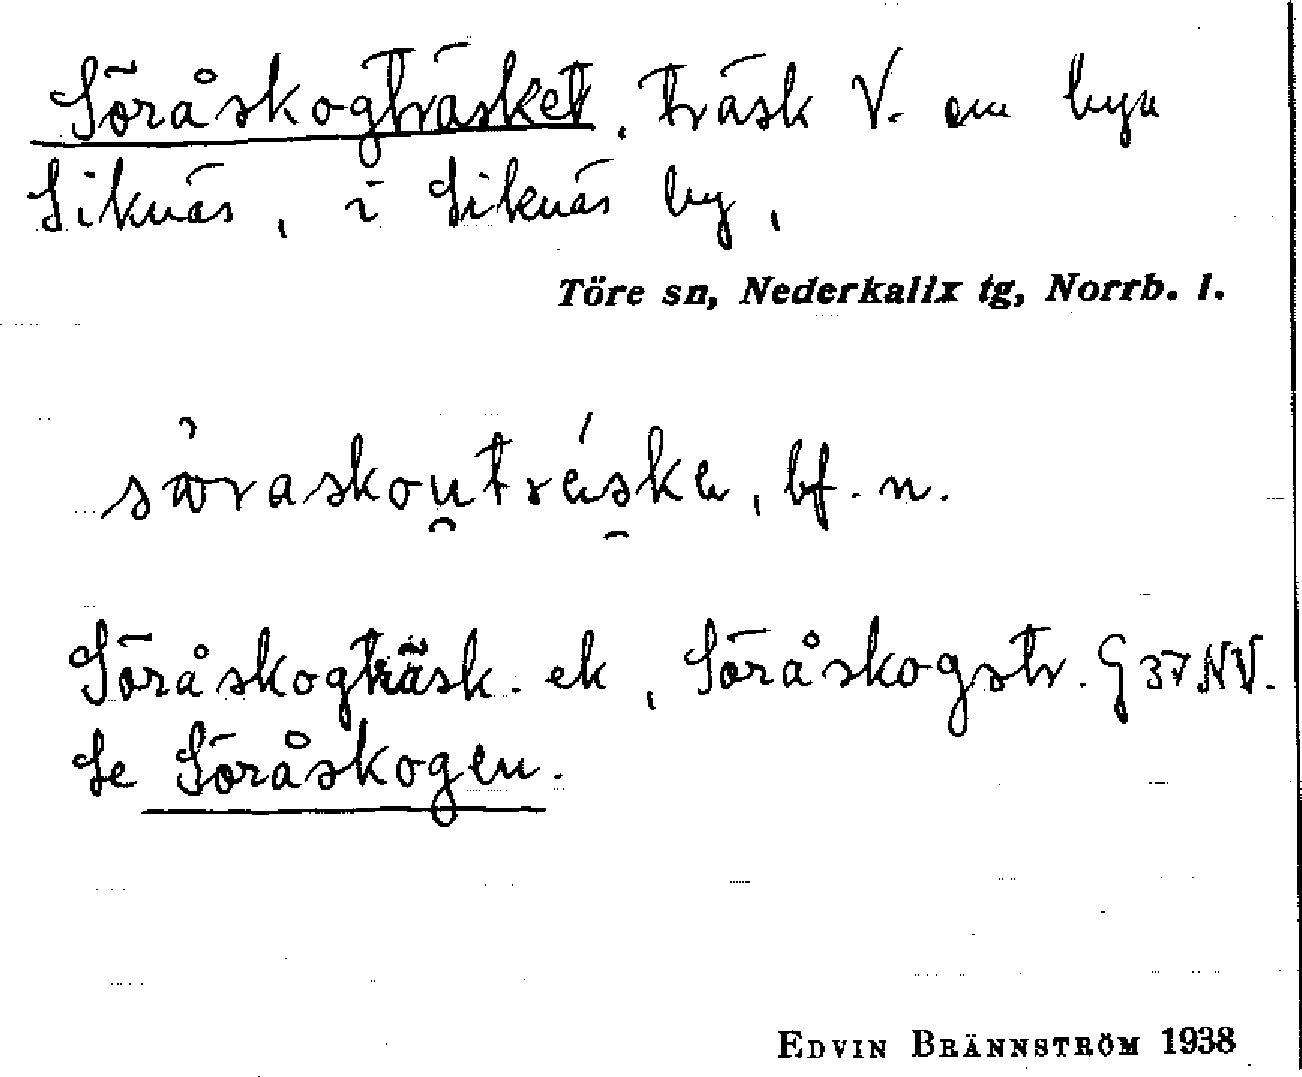 Söråskogträsket, träsk V. om byn
Siknäs, i Siknäs by,
Töre sn, Nederkalix tg, Norrb. l.
söraskou̯träske, bf. n.
Söråskogträsk ek, Söråskogstr. G 37 NV.
Se Söråskogen.
EDVIN BRÄNNSTRÖM 1938